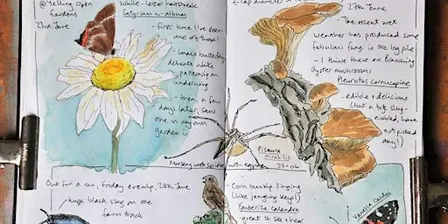 @ Yelling Open
Gardens
22nd June
White-letter hairstreak
Satyrium w-album
- first time I've seen
one of these!
- small butterfly
delicate white
patterning on
underwing
- then, a few
days later, saw
one in my own
garden
27th June
- The recent wet
weather has produced some
fabulous fungi in the log pile
- I think these are Branching
Oyster mushrooms
Pleurotus cornucopiae
- edible & delicious
(but a bit slug-
nibbled, have
not picked
any!)
Pisaura
mirabilis
Nursery web spider with egg sac
Out for a run, Friday evening, 28th June
huge black slug on the
farm track
- Corn bunting singing
(like jangling keys!)
Emberiza calandra
- great to see & hear
Vanessa cardui